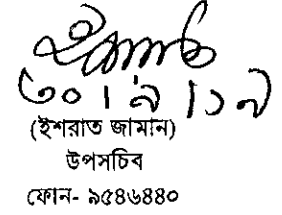 (ইশরাত জামান)
উপসচিব
ফোন- ৯৫৪৬৪৪০